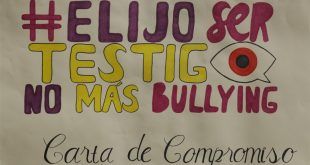 #ELIJO SER
TESTIGO
NO MÁS BULLYING
Carta de Compromiso